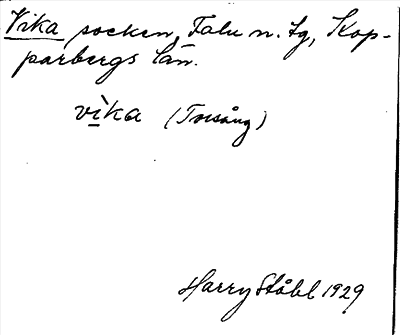 Vika socken, Falu n. tg, Kop-
parbergs län.
vì̱ka (Torsång)
Harry Ståhl 1929